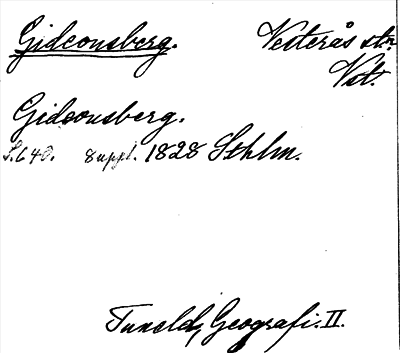 Gideonsberg. Vesterås st:
Vst.
Gideonsberg.
S. 640. suppl. 1828 Sthlm.
Tuneld, Geografi. II.